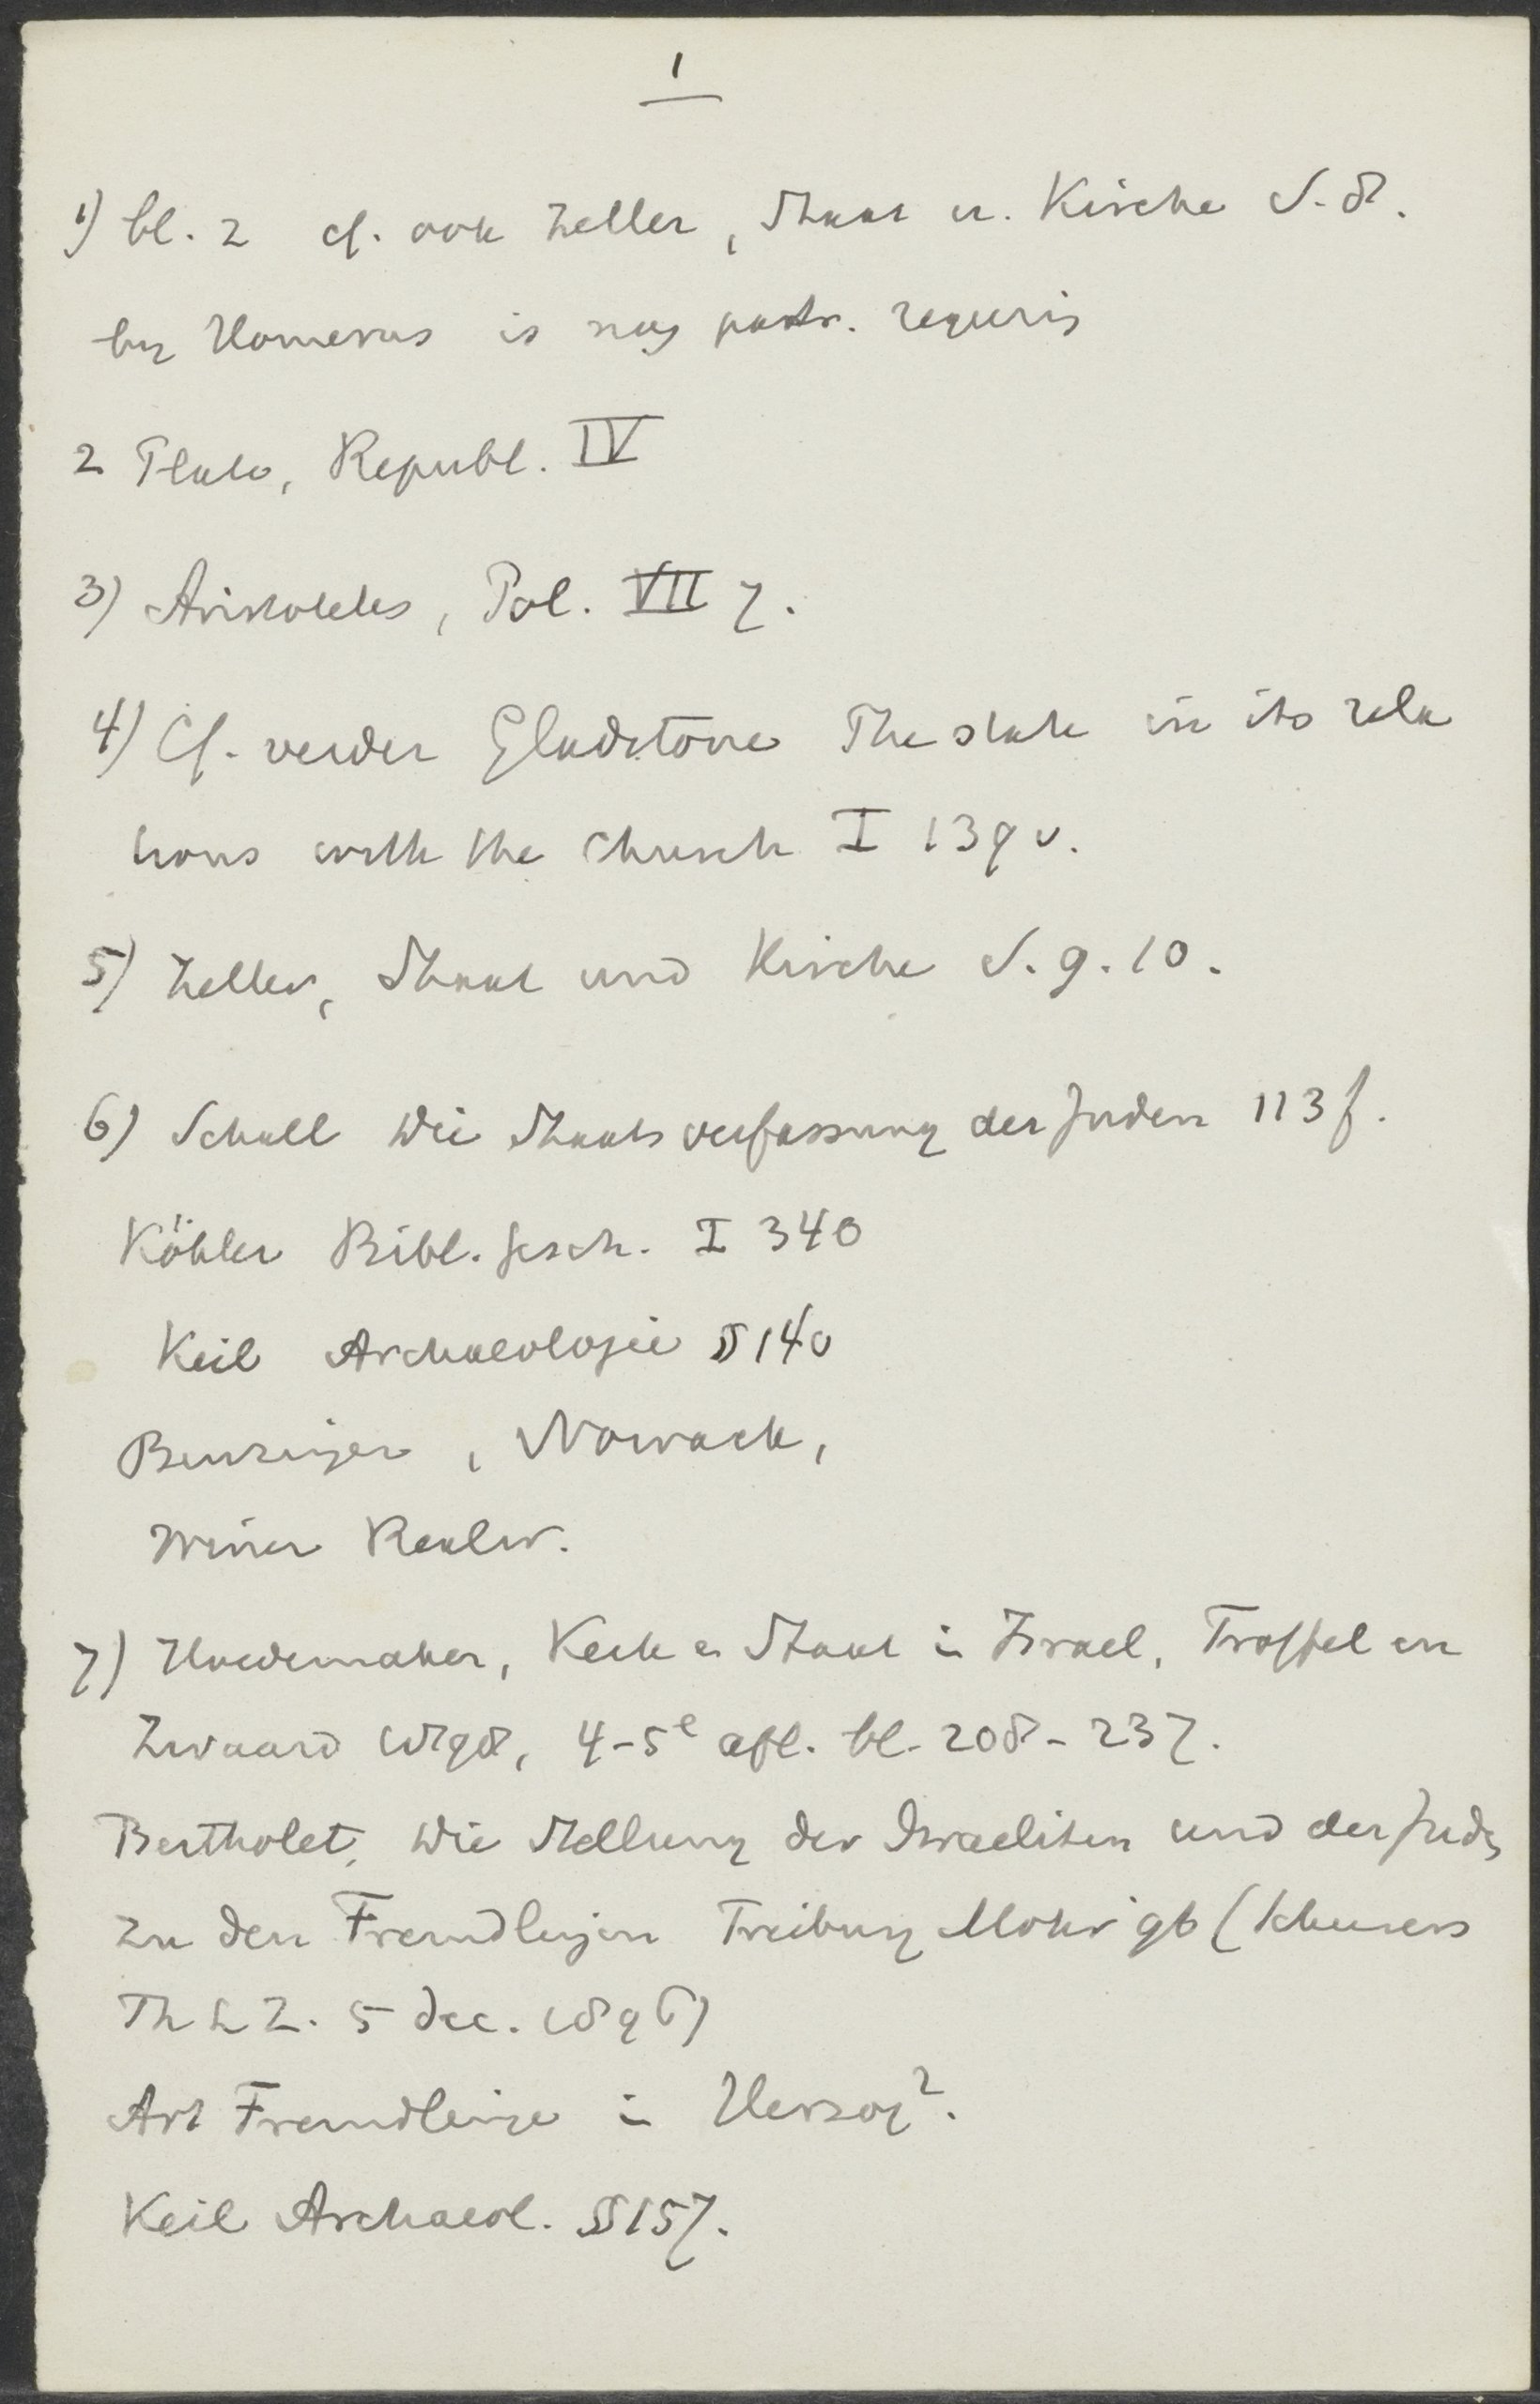 1
1) bl. 2 cf. ook Zeller, Staat u. Kirche S. 8.
by Homerus is nog patr. regeris
2 Plato, Republ. IV
3) Aristoteles, Pol. VII 7.
4) Cf. verder Gladstone The state in its rela
tions with the Church I 139 v.
5) Zeller, Staat und Kirche S. 9. 10.
6) Schall Die Staatsverfassung der Juden 113 f.
Köhler Bibl. Gesch. I 340
Keil Archaeologie § 140
Benzinger, Nowack,
Winer Realw.
7) Hoedemaker, Kerk en Staat in Israel, Troffel en
Zwaard 1898, 4-5e afl. bl. 208-237.
Bertholet, Die Stellung der Israeliten und der Juden
zu den Fremdlingen Freiburg Mohr 96 (Schurers
Th L Z. 5 Dec. 1896)
Art Fremdlinge in Herzog².
Keil Archaeol. § 157.